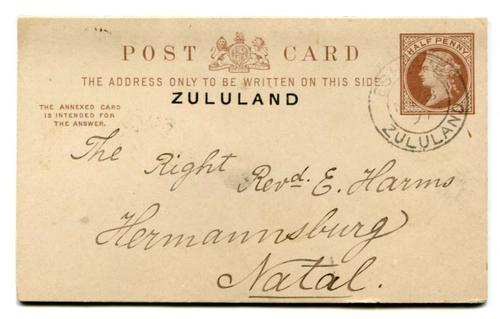 POST CARD
HALF PENNY
THE ADDRESS ONLY TO BE WRITTEN ON THIS SIDE.
ZULULAND
THE ANNEXED CARD
IS INTENDED FOR
THE ANSWER.
ZULULAND
The Right Revd. E. Harms
Hermannsburg
Natal.